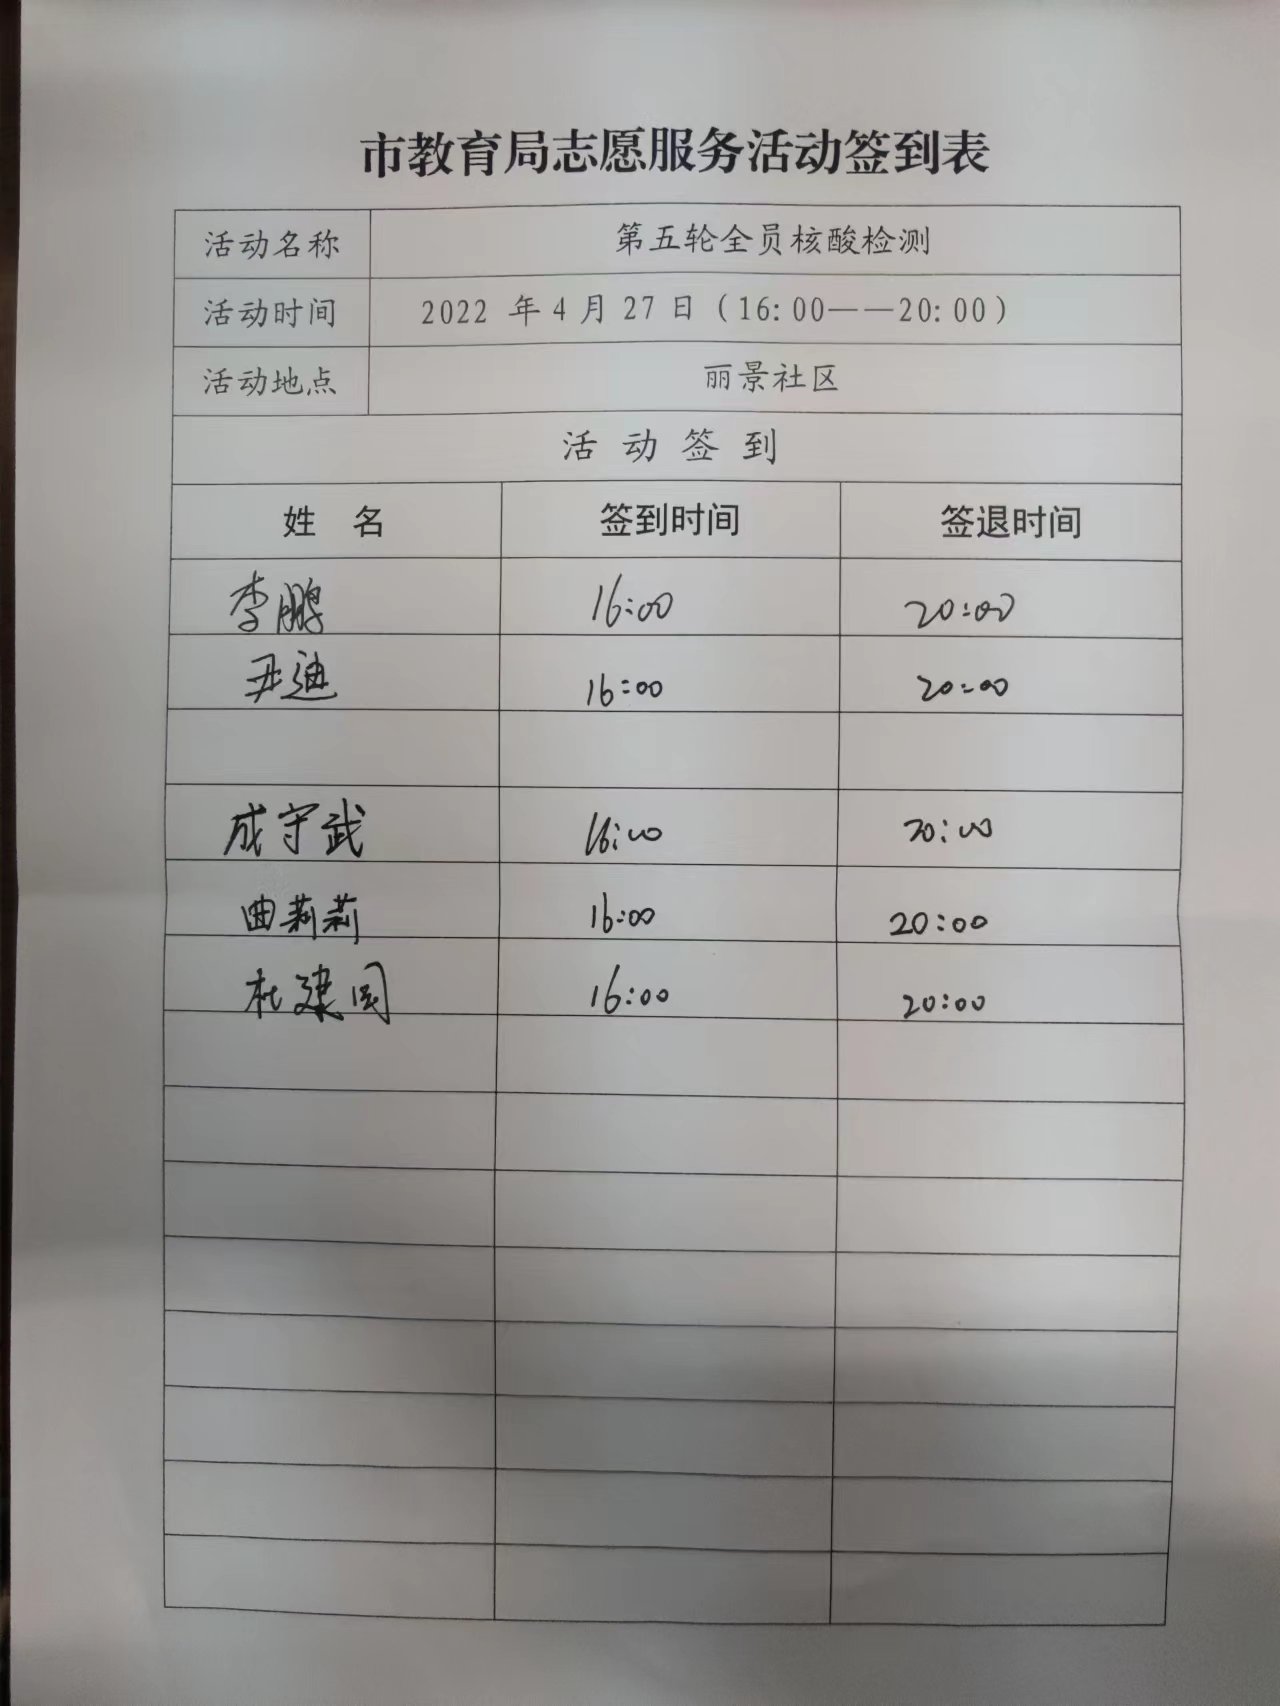 市教育局志愿服务活动签到表
活动名称 第五轮全员核酸检测
活动时间 2022 年 4 月 27 日（16: 00——20: 00）
活动地点 丽景社区
活 动 签 到
姓 名 签到时间 签退时间
李鹏 16:00 20:00
尹迪 16:00 20:00
成守武 16:00 20:00
曲莉莉 16:00 20:00
杜建国 16:00 20:00